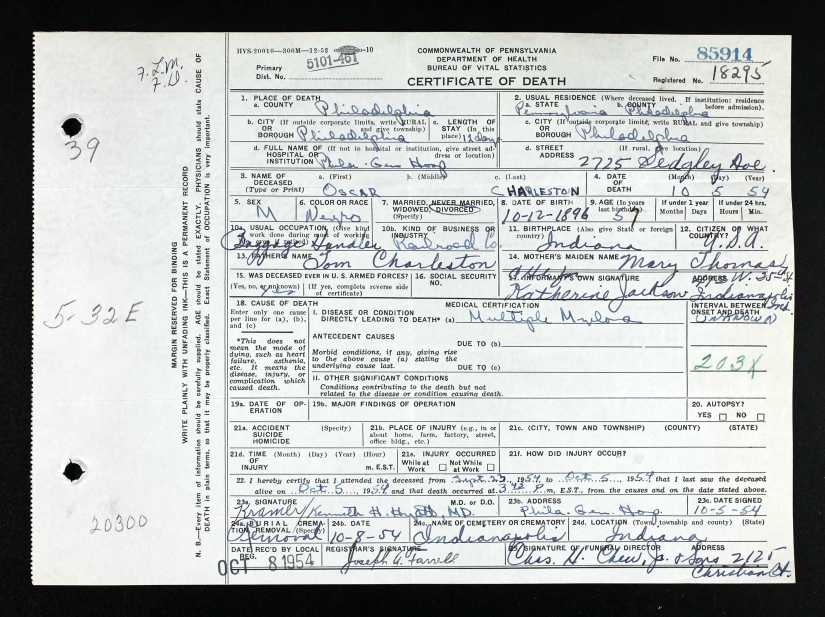 HVS-20010—300M—12-52 —10
COMMONWEALTH OF PENNSYLVANIA
DEPARTMENT OF HEALTH
BUREAU OF VITAL STATISTICS
CERTIFICATE OF DEATH
Primary
Dist. No. 5101-461
File No. 85914
Registered No. 18295
39
5-32E
20300
MARGIN RESERVED FOR BINDING
WRITE PLAINLY WITH UNFADING INK—THIS IS A PERMANENT RECORD
N. B.—Every item of information should be carefully supplied. AGE should be stated EXACTLY. PHYSICIANS should state CAUSE OF
DEATH in plain terms, so that it may be properly classified. Exact Statement of OCCUPATION is very important.
1. PLACE OF DEATH
a. COUNTY Philadelphia
2. USUAL RESIDENCE (Where deceased lived. If institution: residence before admission).
a. STATE Pennsylvania b. COUNTY Philadelphia
b. CITY (If outside corporate limits, write RURAL and give township)
OR BOROUGH Philadelphia
c. LENGTH OF STAY (In this place) 12 days
c. CITY (If outside corporate limits, write RURAL and give township)
OR BOROUGH Philadelphia
d. FULL NAME OF (If not in hospital or institution, give street address or location)
HOSPITAL OR INSTITUTION Phila. Gen Hosp
d. STREET ADDRESS (If rural, give location)
2725 Sedgley Ave.
3. NAME OF DECEASED (Type or Print)
a. (First) b. (Middle) c. (Last)
OSCAR CHARLESTON
4. DATE OF DEATH (Month) (Day) (Year)
10 5 54
5. SEX M
6. COLOR OR RACE Negro
7. MARRIED, NEVER MARRIED, WIDOWED, DIVORCED (Specify)
8. DATE OF BIRTH 10-12-1896
9. AGE (In years last birthday)
If under 1 year Months Days
If under 24 hrs. Hours Min.
10a. USUAL OCCUPATION (Give kind of work done during most of working life, even if retired)
Baggage Handler
10b. KIND OF BUSINESS OR INDUSTRY
Railroad Co.
11. BIRTHPLACE (Also give State or foreign country)
Indiana
12. CITIZEN OF WHAT COUNTRY?
U.S.A.
13. FATHER'S NAME
Tom Charleston
14. MOTHER'S MAIDEN NAME
Mary Thomas
15. WAS DECEASED EVER IN U. S. ARMED FORCES?
(Yes, no, or unknown) (If yes, complete reverse side of certificate)
yes
16. SOCIAL SECURITY NO.
17. INFORMANT'S OWN SIGNATURE ADDRESS
Katherine Jackson W. 35th St Indianapolis Ind.
18. CAUSE OF DEATH
Enter only one cause per line for (a), (b), and (c)
*This does not mean the mode of dying, such as heart failure, asthenia, etc. It means the disease, injury, or complication which caused death.
MEDICAL CERTIFICATION
I. DISEASE OR CONDITION
DIRECTLY LEADING TO DEATH* (a) Multiple Myloma
ANTECEDENT CAUSES
DUE TO (b)
Morbid conditions, if any, giving rise to the above cause (a) stating the underlying cause last.
DUE TO (c)
II. OTHER SIGNIFICANT CONDITIONS
Conditions contributing to the death but not related to the disease or condition causing death.
INTERVAL BETWEEN ONSET AND DEATH
UNKNOWN
203X
19a. DATE OF OPERATION
19b. MAJOR FINDINGS OF OPERATION
20. AUTOPSY?
YES NO
21a. ACCIDENT SUICIDE HOMICIDE (Specify)
21b. PLACE OF INJURY (e.g., in or about home, farm, factory, street, office bldg., etc.)
21c. (CITY, TOWN AND TOWNSHIP) (COUNTY) (STATE)
21d. TIME OF INJURY (Month) (Day) (Year) (Hour) m. E.ST.
21e. INJURY OCCURRED
While at Work Not While at Work
21f. HOW DID INJURY OCCUR?
22. I hereby certify that I attended the deceased from Sept 23, 1954 to Oct 5, 1954 that I last saw the deceased
alive on Oct 5, 1954 and that death occurred at P. m., EST., from the causes and on the date stated above.
23a. SIGNATURE M.D. or D.O.
Kramer / Kenneth H. MD.
23b. ADDRESS
Phila. Gen. Hosp.
23c. DATE SIGNED
10-5-54
24a. BURIAL, CREMATION, REMOVAL (Specify)
Removal
24b. DATE
10-8-54
24c. NAME OF CEMETERY OR CREMATORY
Indianapolis
24d. LOCATION (Town, township and county) (State)
Indiana
DATE REC'D BY LOCAL REG.
OCT 8 1954
REGISTRAR'S SIGNATURE
Joseph A. Farrell
25. SIGNATURE OF FUNERAL DIRECTOR ADDRESS
Chas. H. Chew, Jr. & Sons 2125
Christian St.